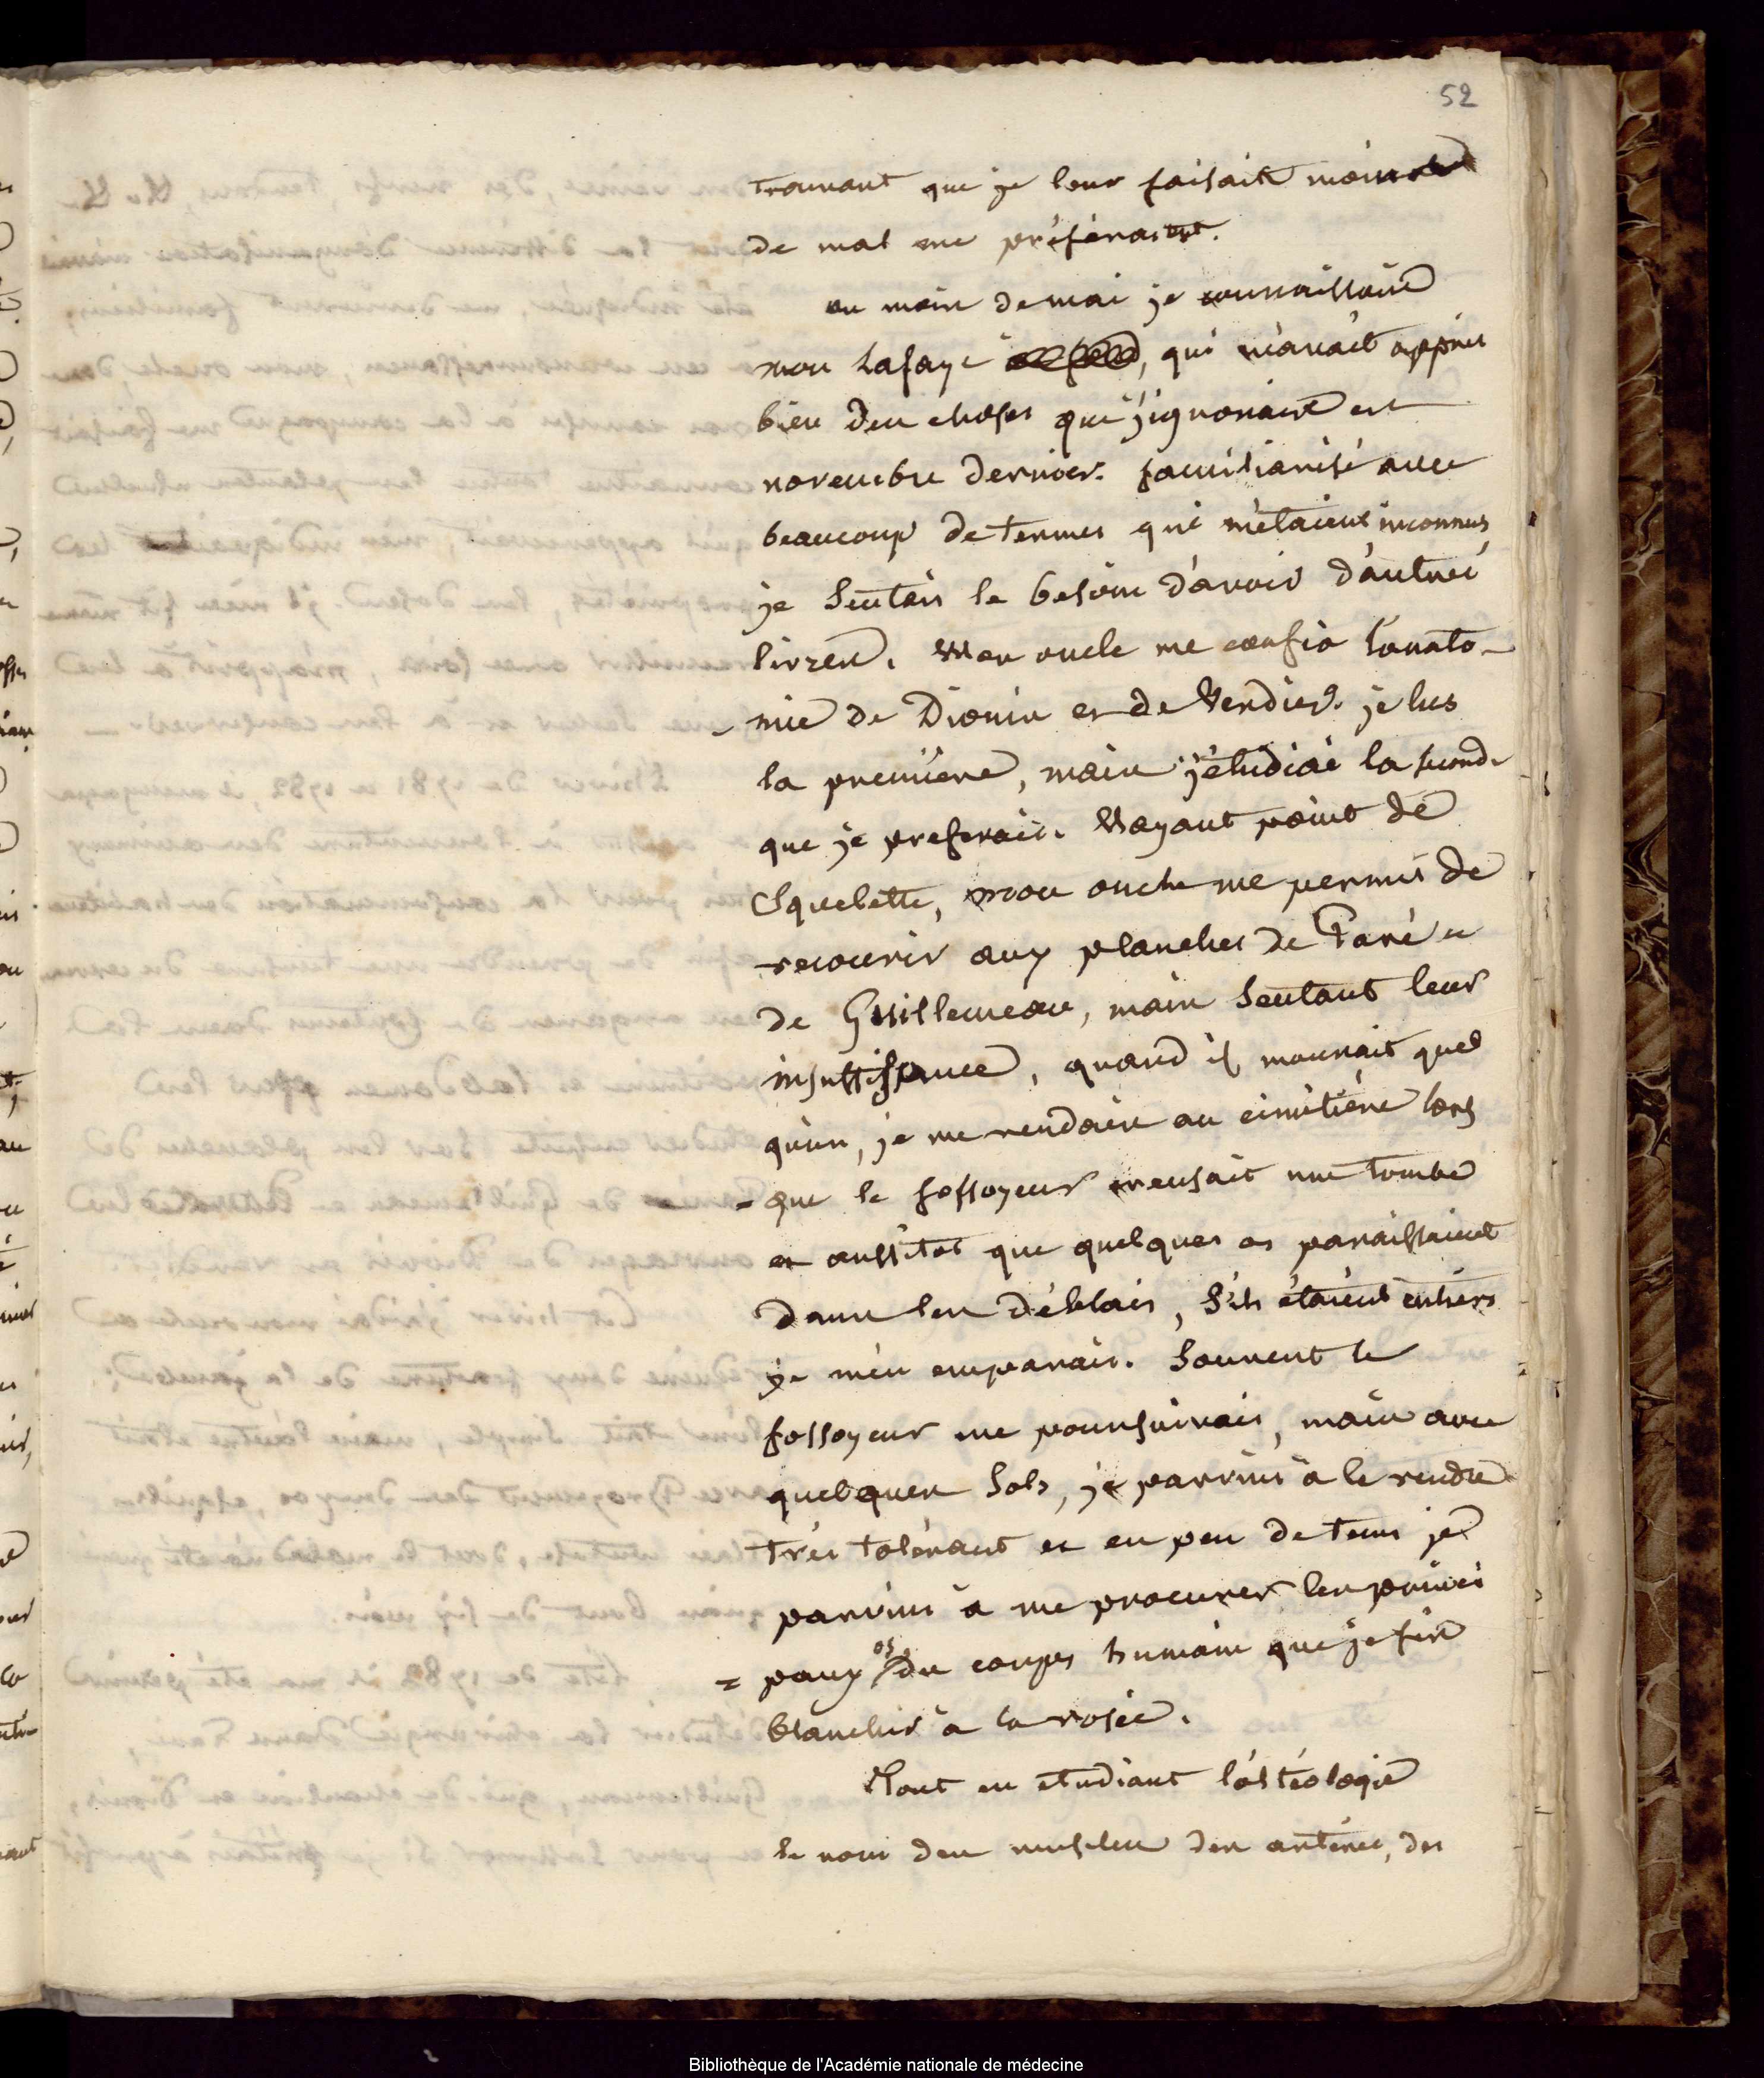 52
trouvant que je leur faisait moins
de mal me préferaient.
au mois de mai je connaissais
mon Lafaye, qui m'avait appris
bien des choses que j'ignorais en
novembre dernier. familiarisé avec
beaucoup de termes qui m'étaient inconnus,
je sentais le besoin d'avoir d'autres
livres. Mon oncle me confia l'anato-
- mie de Dionis et de Verdier. je lus
la premiere, mais j'étudiai la seconde
que je preferais. N'ayant point de
squelette, mon oncle me permis de
recourir aux planches de Paré et
de Guillemeau, mais sentant leur
insuffisance, quand il mourait quel
qu'un, je me rendais au cimétière lors
= que le fossoyeur creusait une tombe
et aussitot que quelques os paraissaient
dans les déblais, s'ils étaient entiers
je m'en emparais. Souvent le
fossoyeur me poursuivais, mais avec
quelques sols, je parvins à le rendre
très tolérant et en peu de tems je
parvins à me procurer les princi
= paux os du corps humain que je fis
blanchir à la rosée.
Tout en etudiant l'ostéologie
le nom des muscles des artères, des
Bibliothèque de l'Académie nationale de médecine